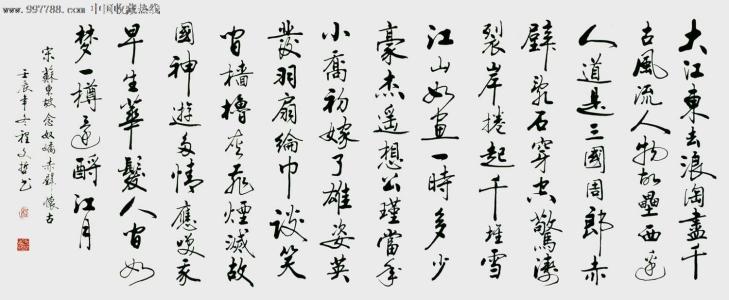 www.997788.com 中国收藏热线
大江東去浪淘盡千
古風流人物故壘西邊
人道是三國周郎赤
壁亂石穿空驚濤
裂岸捲起千堆雪
江山如畫一時多少
豪杰遥想公瑾當年
小喬初嫁了雄姿英
發羽扇綸巾談笑
間檣櫓灰飛煙滅故
國神遊多情應笑我
早生華髮人間如
梦一樽還酹江月
宋蘇東坡念奴嬌赤壁懷古
壬辰年冬程文哲书